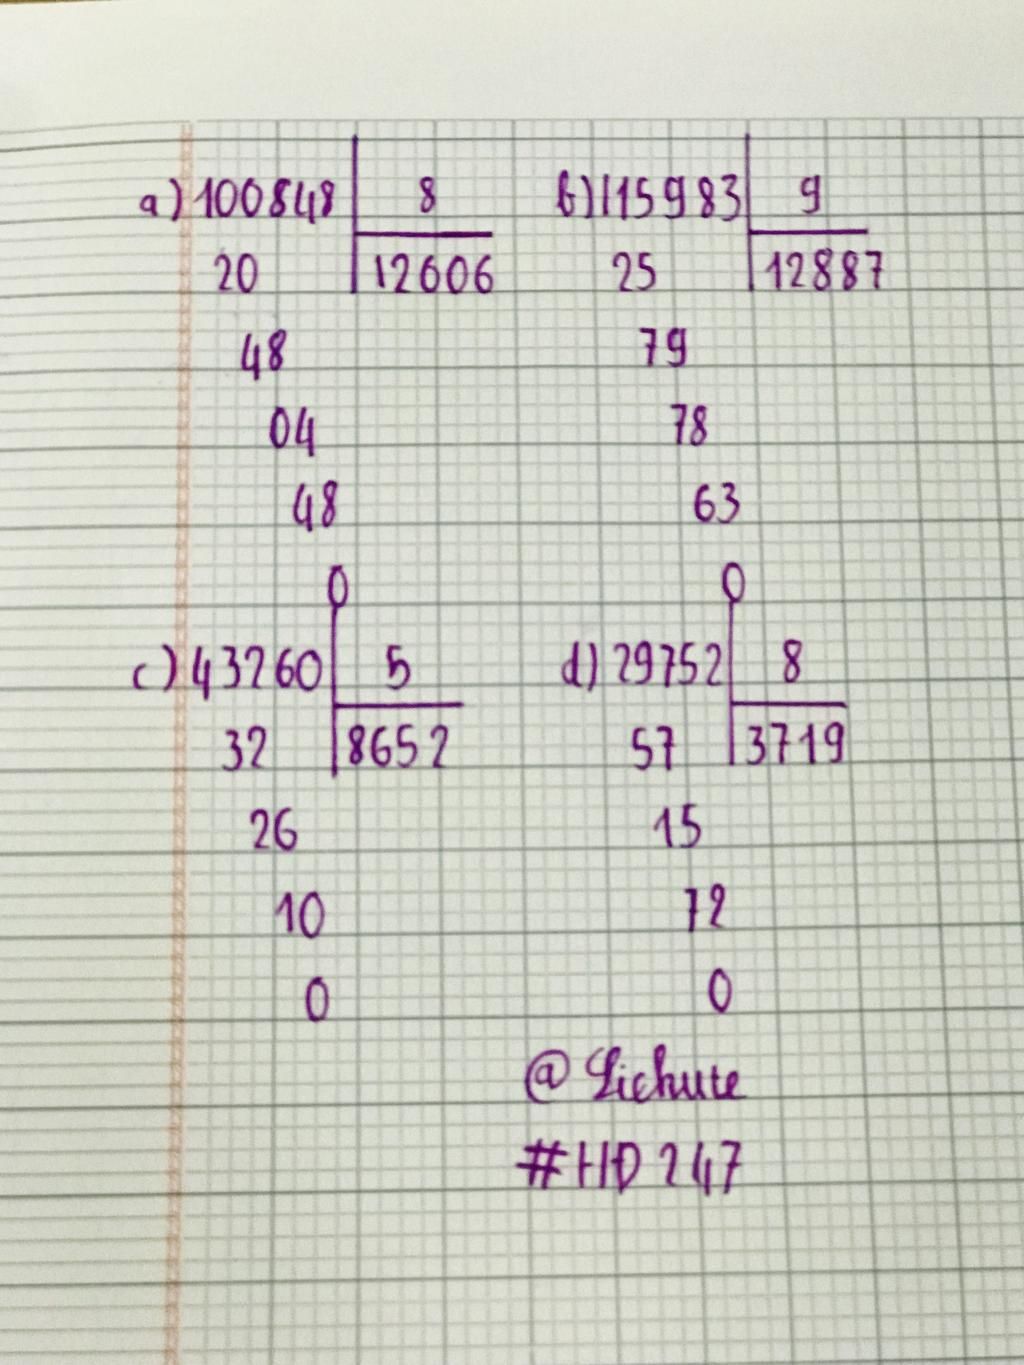 a) 100848 | 8
20 | 12606
48
04
48
0
b) 115983 | 9
25 | 12887
79
78
63
0
c) 43260 | 5
32 | 8652
26
10
0
d) 29752 | 8
57 | 3719
15
72
0
@Lichute
#HD247